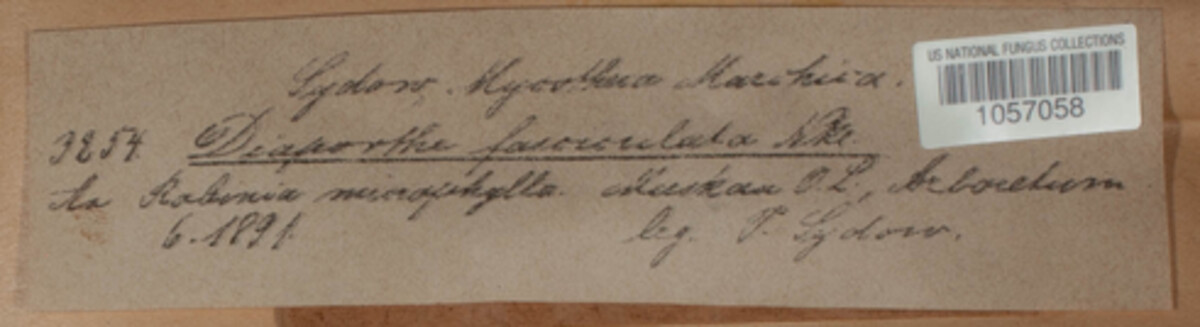 Sydow, Mycotheca Marchica.
US NATIONAL FUNGUS COLLECTIONS
1057058
3254. Diaporthe fasciculata Nke.
An Robinia microphylla. Muskau O.L., Arboretum
6.1891. leg. P. Sydow.